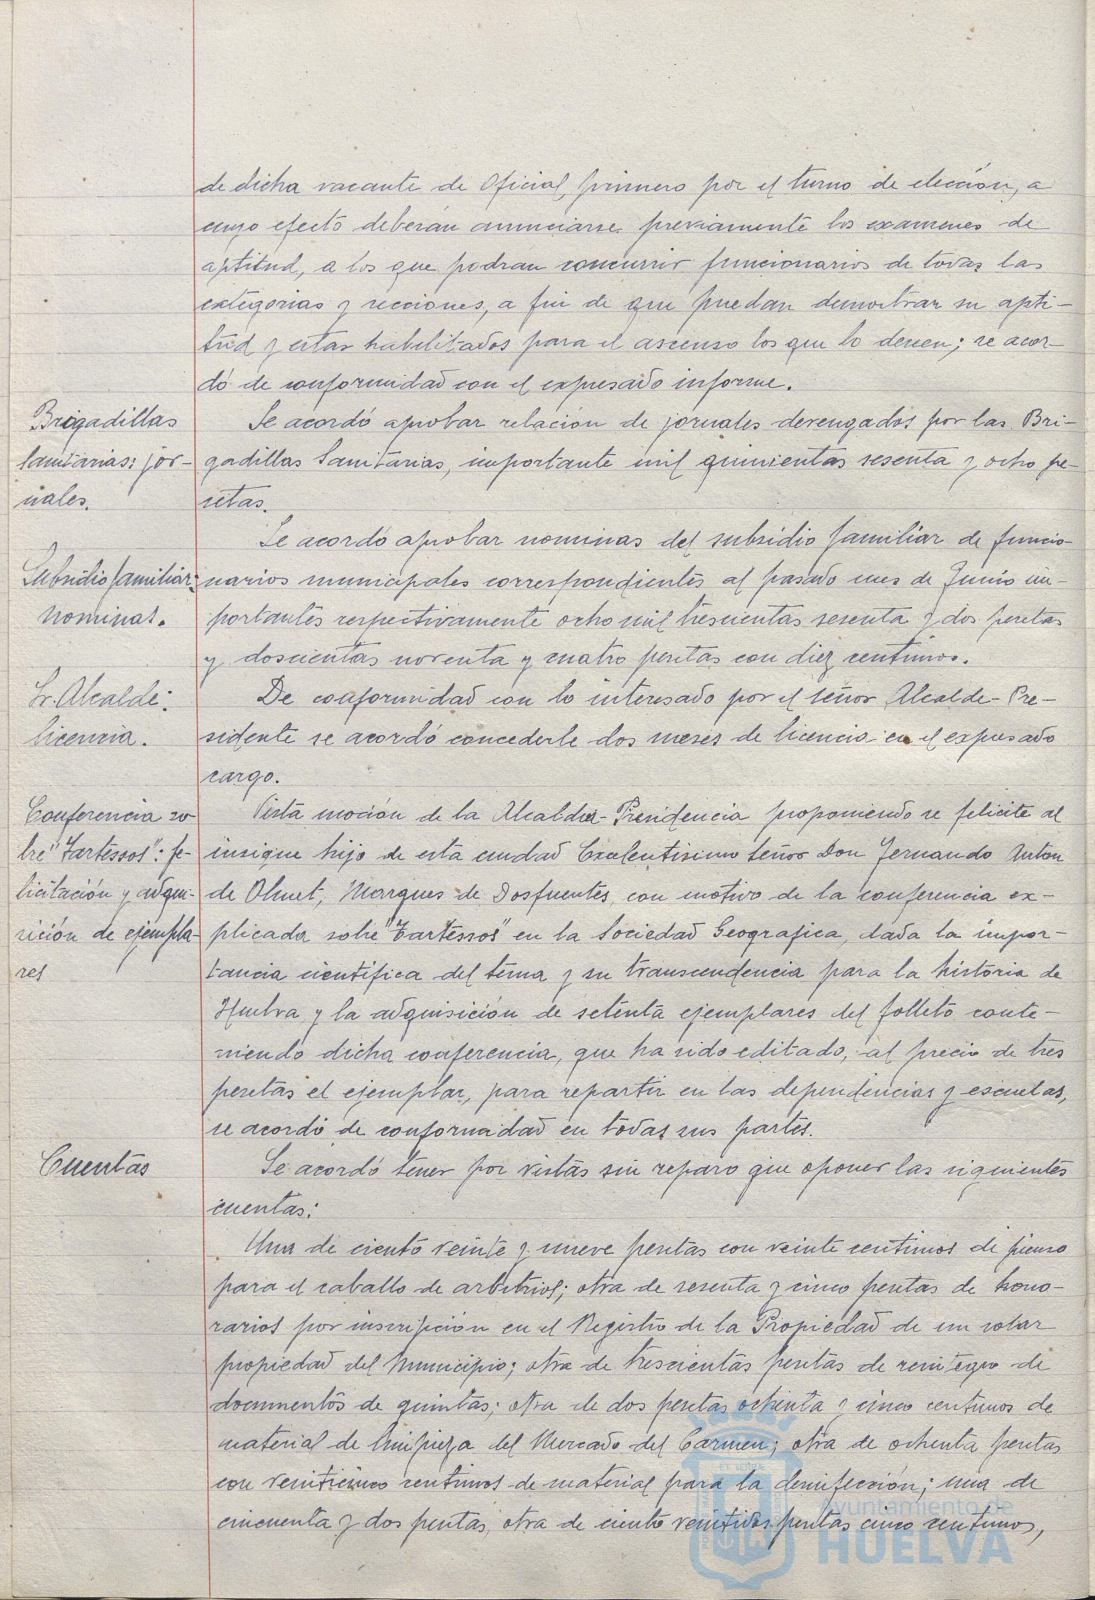 de dicha vacante de Oficial, primero por el turno de elección, a
cuyo efecto deberán anunciarse previamente los examenes de
aptitud, a los que podran concurrir funcionarios de todas las
categorias y secciones, a fin de que puedan demostrar su apti-
tud y estar habilitados para el ascenso los que lo deseen; se acor-
dó de conformidad con el expresado informe.
Brigadillas
Sanitarias: jor-
nales.
Se acordó aprobar relación de jornales devengados por las Bri-
gadillas Sanitarias, importante mil quinientas sesenta y ocho pe-
setas.
Subsidio familiar:
nominas.
Se acordó aprobar nominas del subsidio familiar de funcio-
narios municipales correspondientes al pasado mes de Junio im-
portantes respectivamente ocho mil trescientas sesenta y dos pesetas
y doscientas noventa y cuatro pesetas con diez centimos.
Sr. Alcalde:
licencia.
De conformidad con lo interesado por el señor Alcalde-Pre-
sidente se acordó concederle dos meses de licencia en el expresado
cargo.
Conferencia so-
bre "Tartessos": fe-
licitación y adqui-
sición de ejempla-
res
Vista moción de la Alcaldia-Presidencia proponiendo se felicite al
insigne hijo de esta ciudad Excelentisimo Señor Don Fernando Anton
de Olmet, Marques de Dosfuentes, con motivo de la conferencia ex-
plicada sobre "Tartessos" en la Sociedad Geografica, dada la impor-
tancia científica del tema y su transcendencia para la historia de
Huelva y la adquisición de setenta ejemplares del folleto conte-
niendo dicha conferencia, que ha sido editado, al precio de tres
pesetas el ejemplar, para repartir en las dependencias y escuelas,
se acordó de conformidad en todas sus partes.
Cuentas
Se acordó tener por vistas sin reparo que oponer las siguientes
cuentas:
Una de ciento veinte y nueve pesetas con veinte centimos de pienso
para el caballo de arbitrios; otra de sesenta y cinco pesetas de hono-
rarios por inscripción en el Registro de la Propiedad de un solar
propiedad del Municipio; otra de trescientas pesetas de reintegro de
documentos de quintas; otra de dos pesetas ochenta y cinco centimos de
material de limpieza del Mercado del Carmen; otra de ochenta pesetas
con veinticinco centimos de material para la desinfección; una de
cincuenta y dos pesetas, otra de ciento veintidos pesetas cinco centimos,
Ayuntamiento de
HUELVA